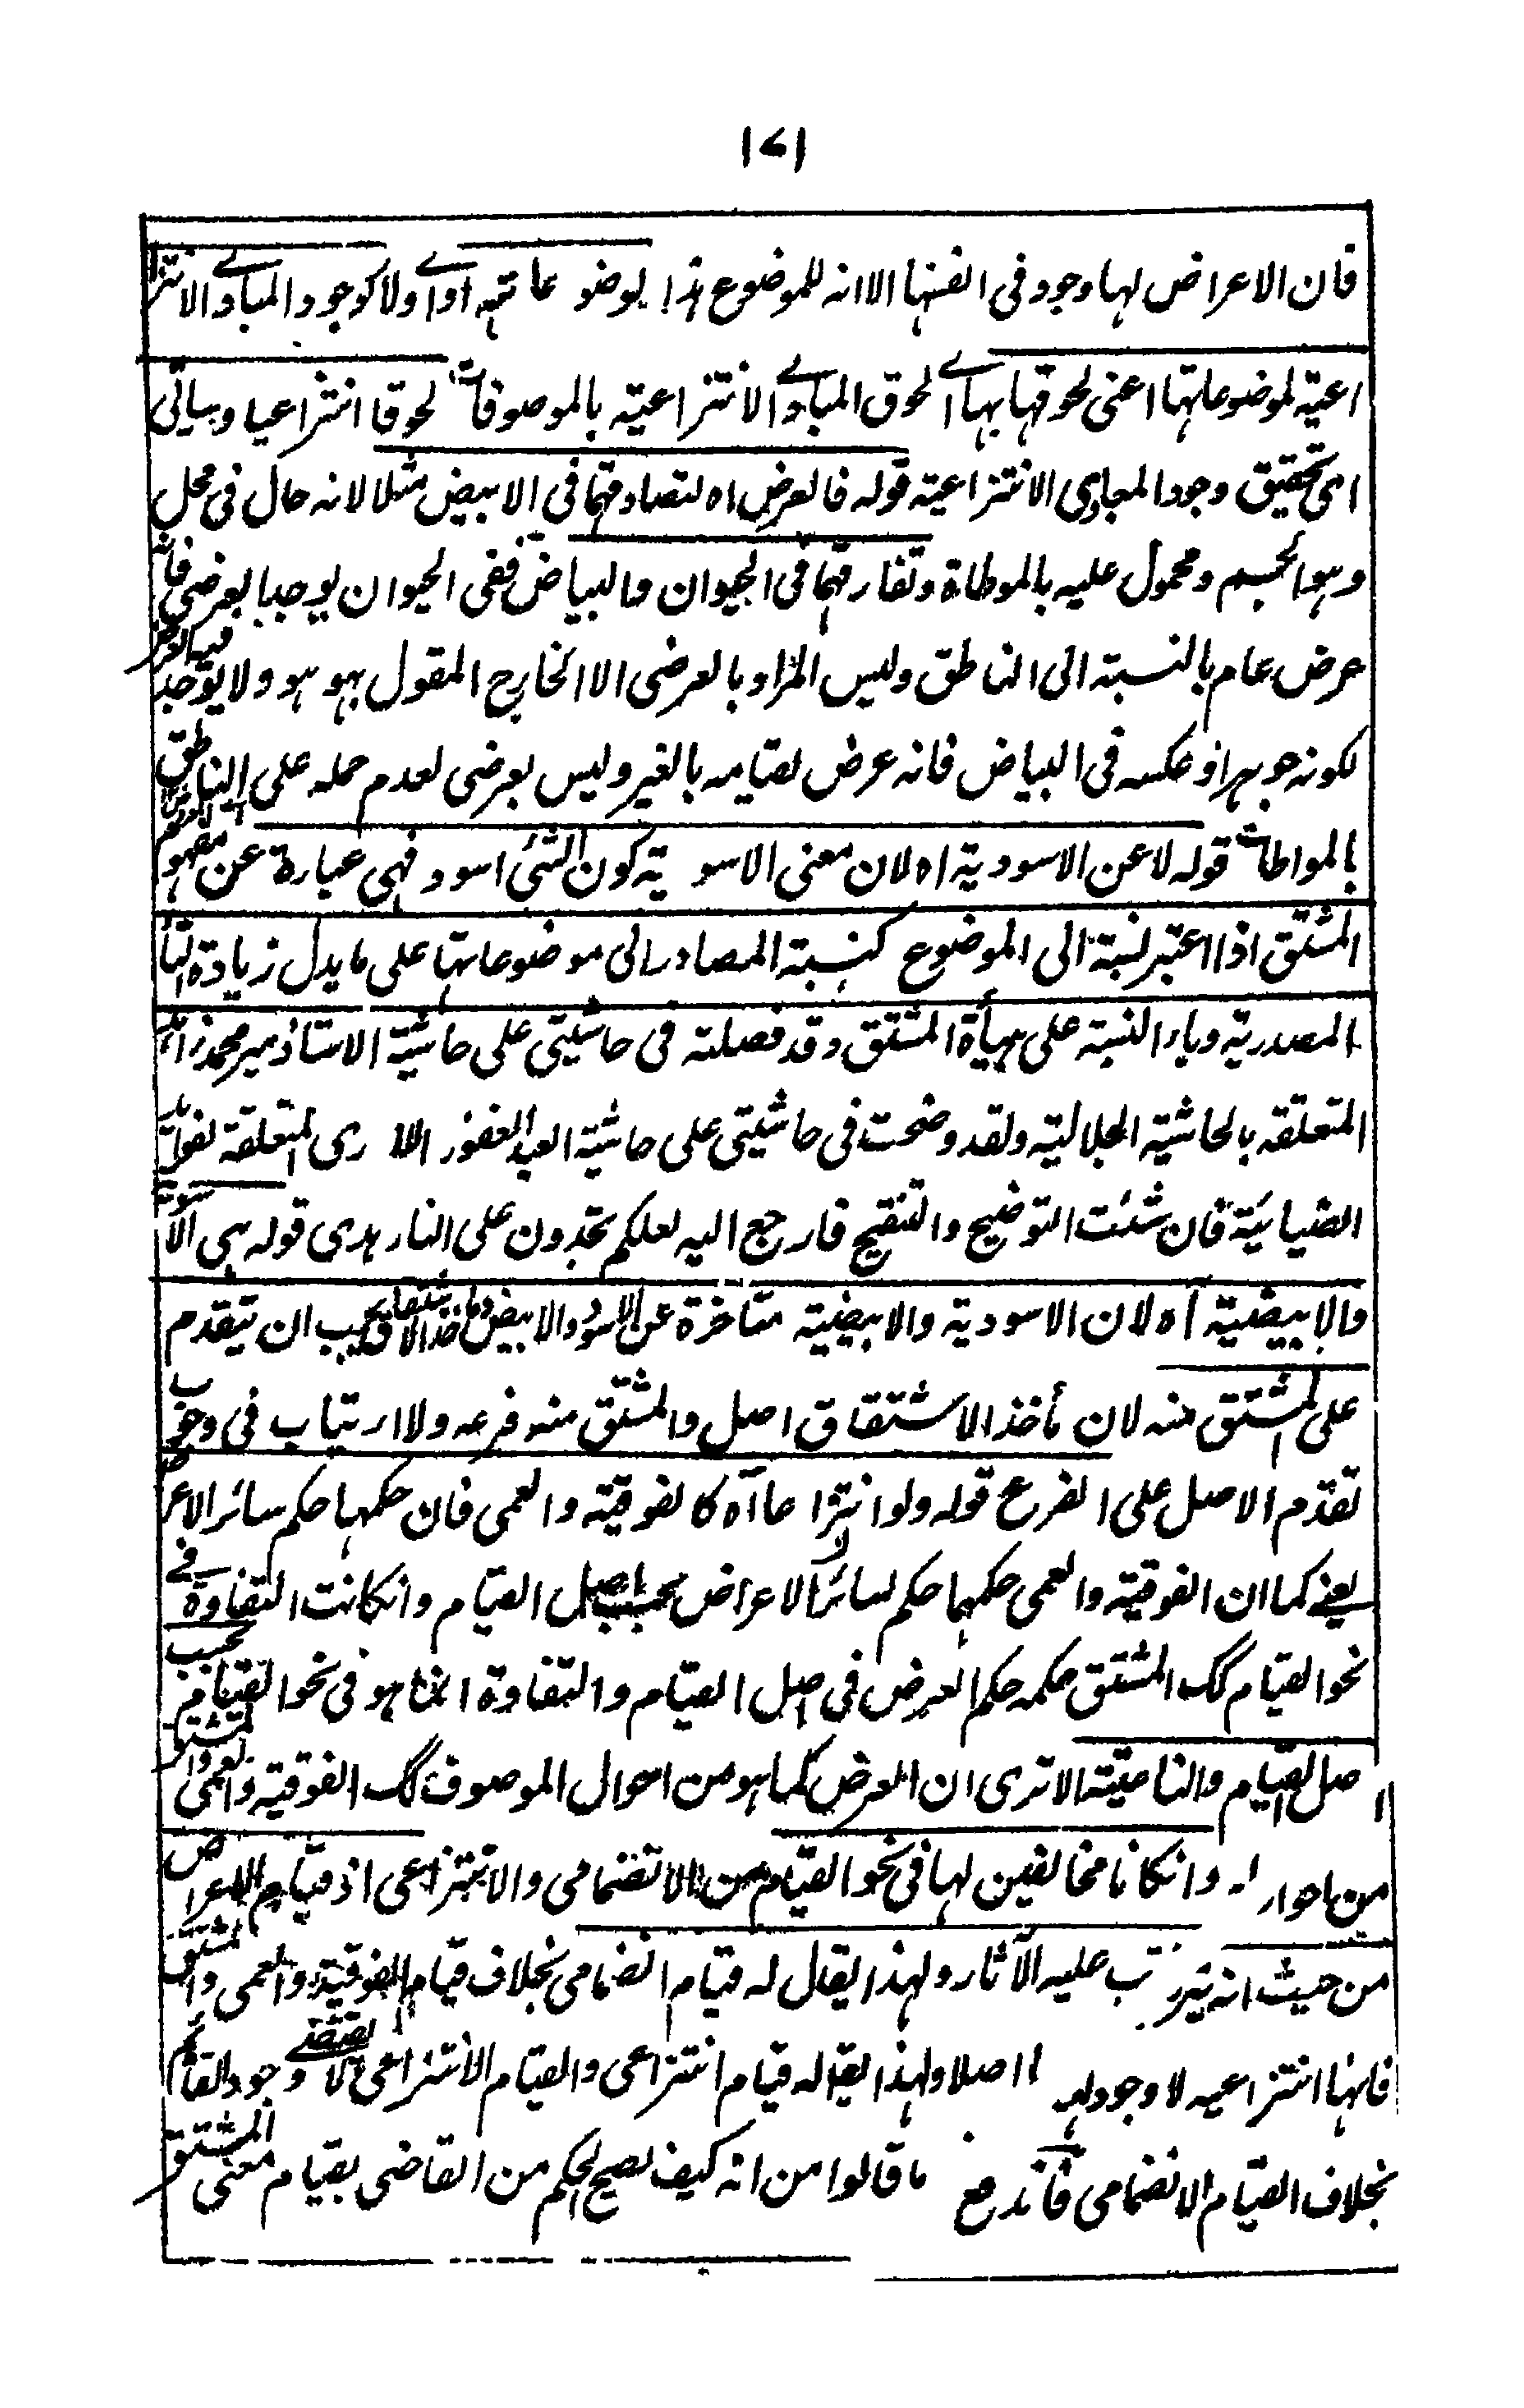 ١٧١
فان الاعراض لها وجود فى انفسها الا انه للموضوع هذا اولا كوجود المبادى الانتز
اعية لموضوعاتها اعنى لحوقها بها اى لحوق المبادى الانتزاعية بالموصوفات لحوقا انتزاعيا وسياتى
اى تحقيق وجود المبادى الانتزاعية قوله فالعرض اه لتصادقهما فى الابيض مثلا لانه حال فى محل
وهو الجسم ومحمول عليه بالمواطاة وتفارقهما فى الحيوان والبياض ففى الحيوان يوجد العرضى فانه
عرض عام بالنسبة الى الناطق وليس المراد بالعرضى الا الخارج المقول بهو هو ولا يوجد فيه العرض
لكونه جوهرا وعكسه فى البياض فانه عرض لقيامه بالغير وليس بعرضى لعدم حمله على الناطق
بالمواطات قوله لا عن الاسودية اه لان معنى الاسو ية كون الشئ اسود فهى عبارة عن مفهوم
المشتق اذا اعتبر نسبته الى الموضوع كنسبة المصادر الى موضوعاتها على ما يدل زيادة التاء
المصدرية وياء النسبة على هيأة المشتق وقد فصلته فى حاشيتى على حاشية الاستاذ مير محمد زاهد
المتعلقه بالحاشية الجلالية ولقد وضحت فى حاشيتى على حاشية العبد الغفور اللا رى المتعلقة لفوائد
الضيائية فان شئت التوضيح والتنقيح فارجع اليه لعلكم تجدون على النار هدى قوله هى الاسودية
والابيضية آه لان الاسودية والابيضية متاخرة عن الاسود والابيض وماخذ الاشتقاق يجب ان يتقدم
على المشتق منه لان مأخذ الاشتقاق اصل والمشتق منه فرعه ولا ارتياب فى وجوب
تقدم الاصل على الفرع قوله ولو انتزا عا آه كالفوقية والعمى فان حكمها حكم سائر الاعراض
يعنى كما ان الفوقية والعمى حكمهما حكم لسائر الاعراض بحسب اصل القيام وانكانت التفاوة فى
نحو القيام كك المشتق حكمه حكم العرض فى اصل القيام والتفاوة انما هو فى نحو القيام بحسب
صل القيام والناعتية الا ترى ان العرض كما هو من احوال الموصوف كك الفوقية والعمى والمشتق
من احوار له وانكانا مخالفين لها فى نحو القيام من الانضمامى والانتزاعى اذ قيام الاعراض
من حيث انه يتر تب عليه الآثار ولهذا يقال له قيام انضمامى بخلاف قيام الفوقية والعمى والمشتق
فانها انتزاعيه لا وجود لها اصلا ولهذا يقال له قيام انتزاعى والقيام الانتزاعى لا يقتضى وجود القائم
بخلاف القيام الانضمامى فاندفع ما قالوا من انه كيف يصح الحكم من القاضى بقيام معنى المشتق